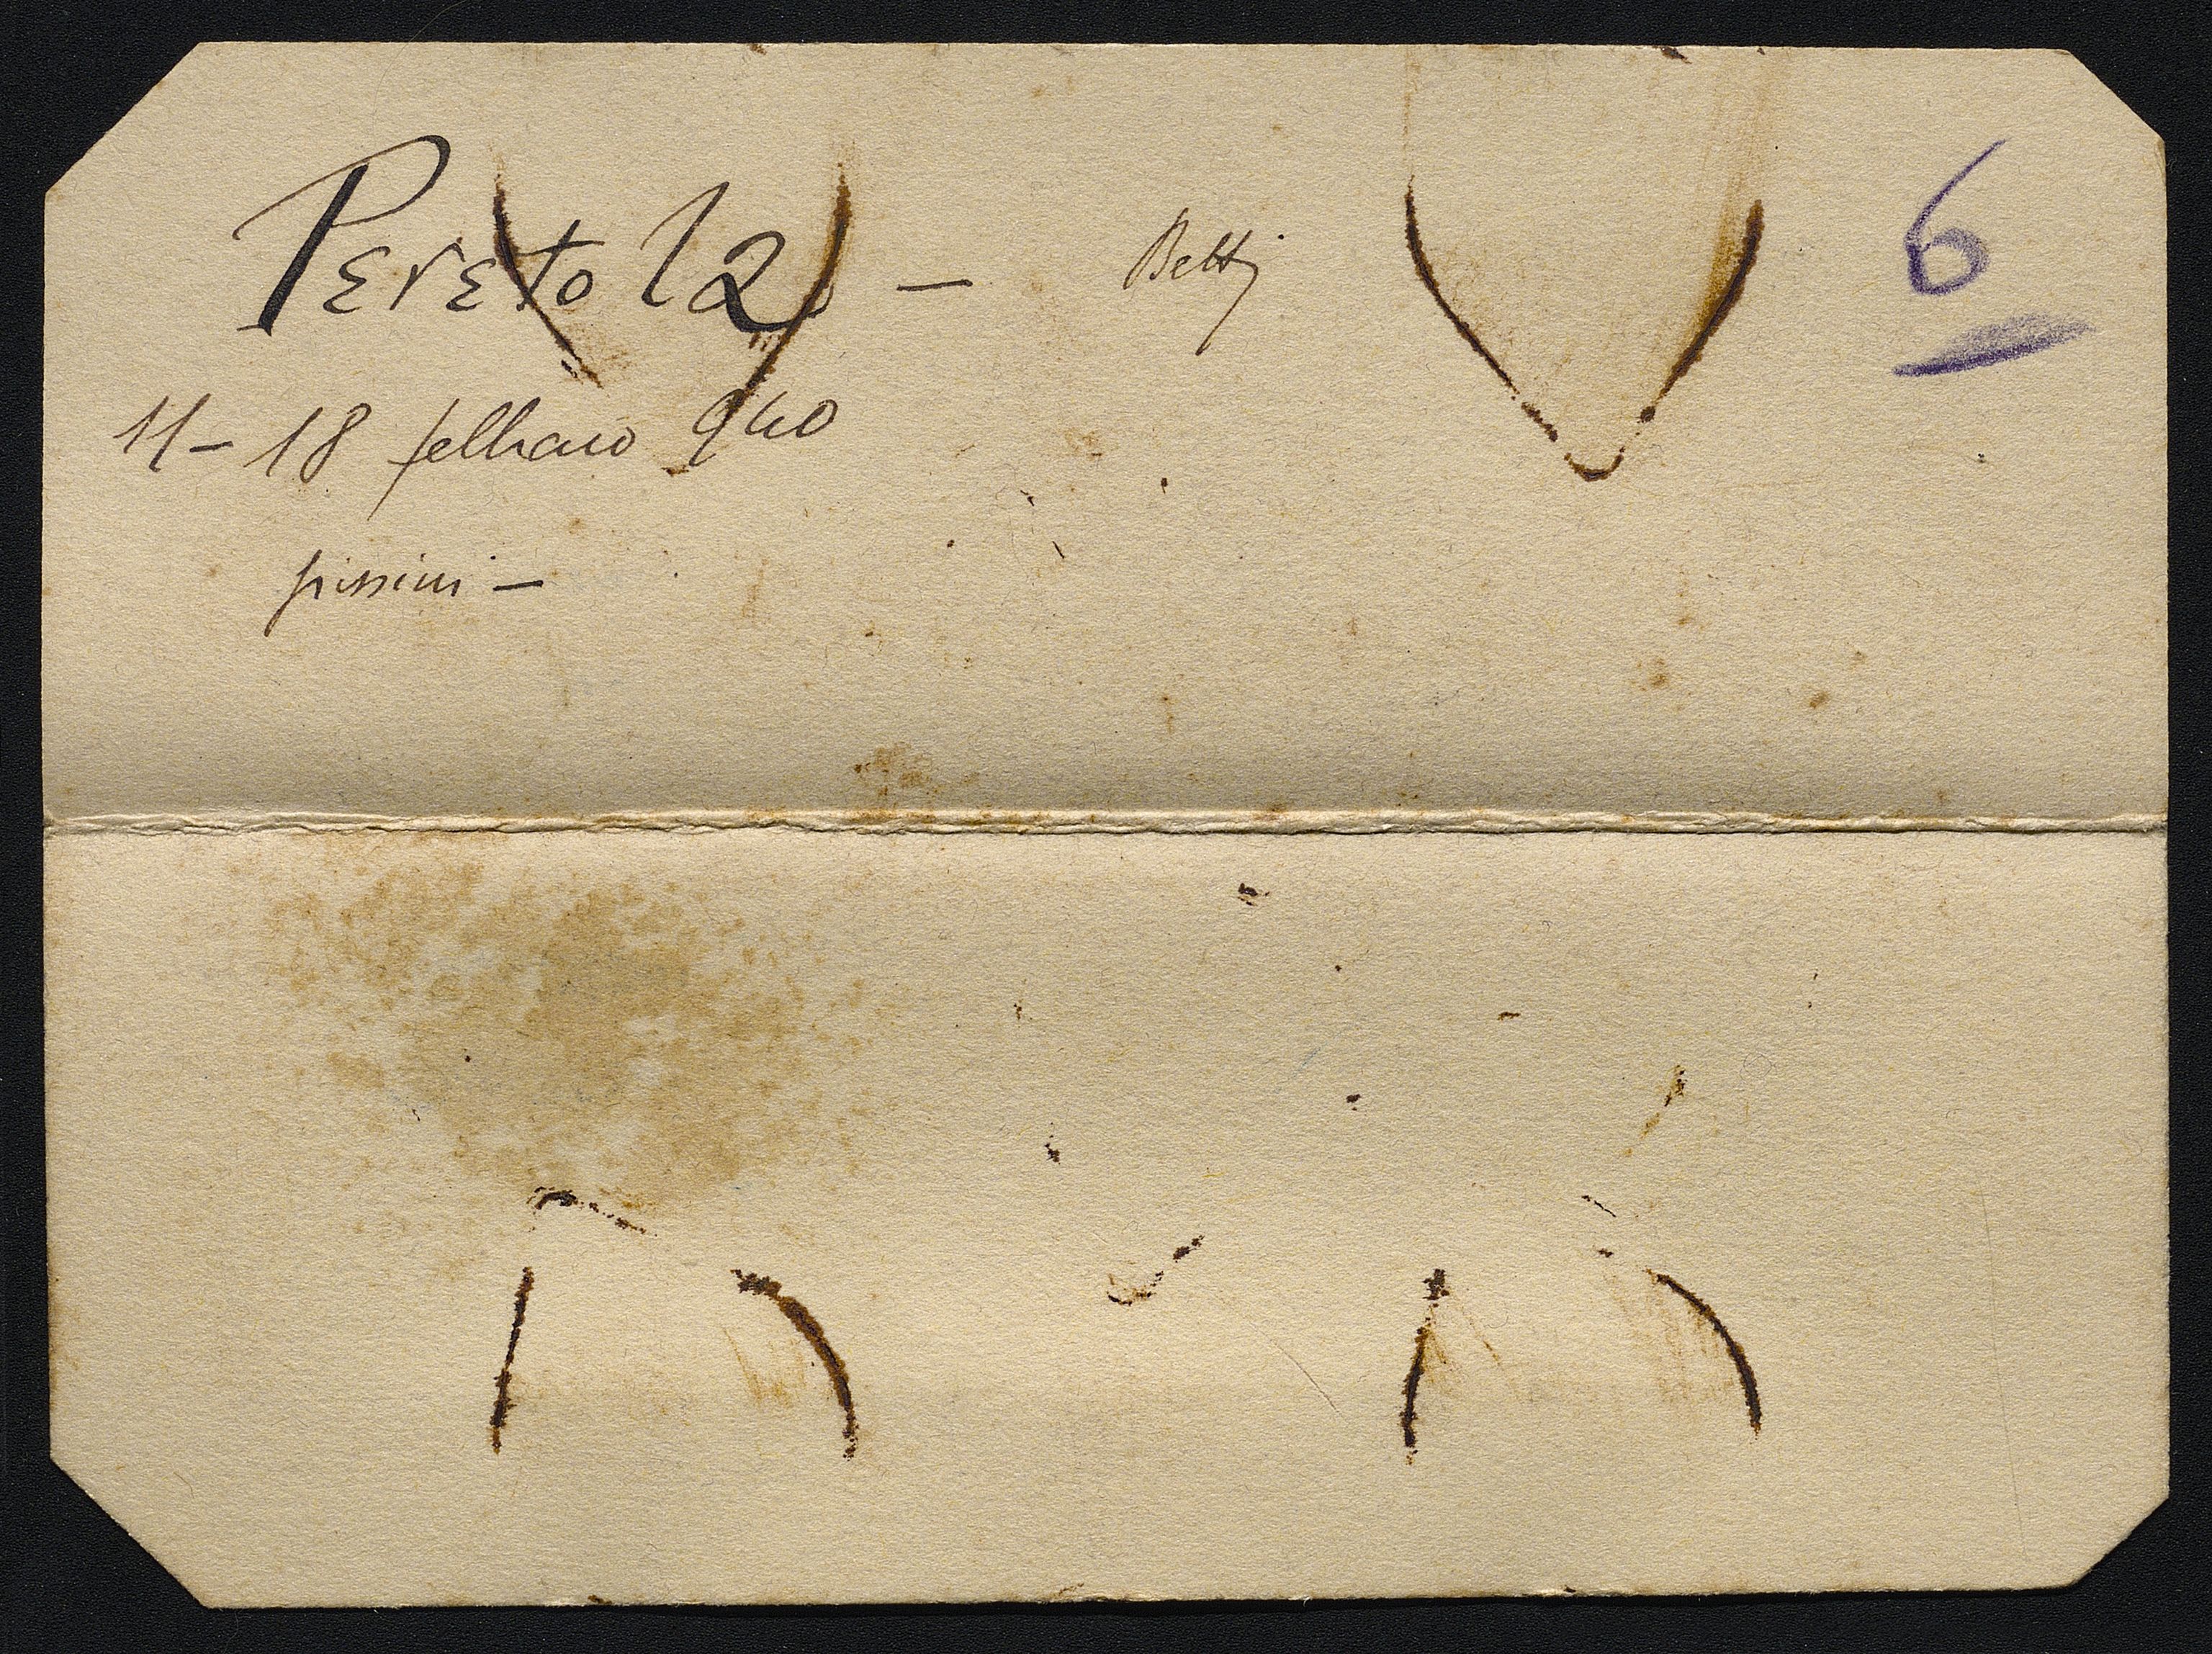 Pereto 12 — Betti 6
11 - 18 febbraio 940
pissini —